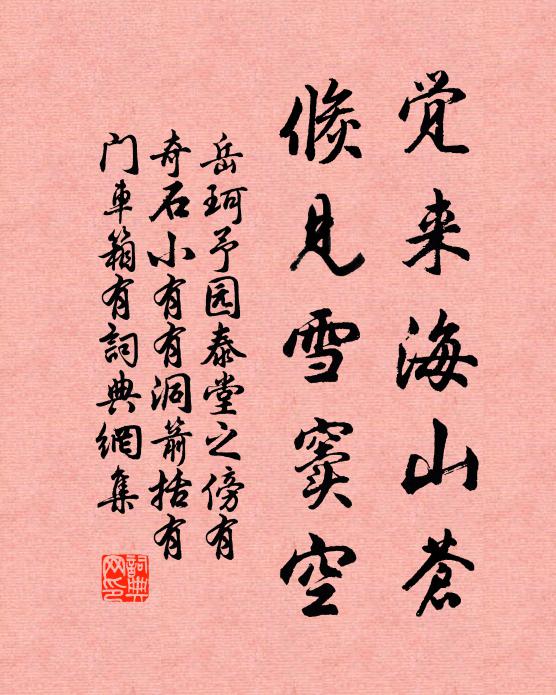 觉来海山苍
倏见雪窦空
岳珂予园泰堂之傍有
奇石小有有洞箭括有
门车箱有詞典網集
詞典网印